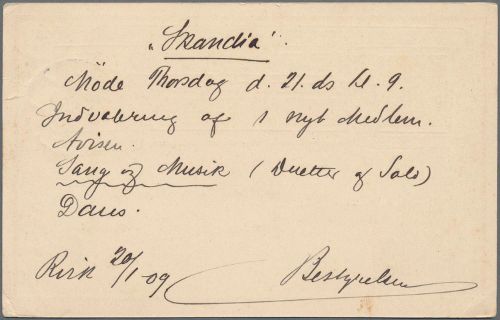 „Skandia“.
Möde Thorsdag d. 21. ds kl. 9.
Indvotering af 1 nyt Medlem.
Avisen.
Sang og Musik (Duetter og Solo)
Dans.
20/1-09
Bestyrelsen